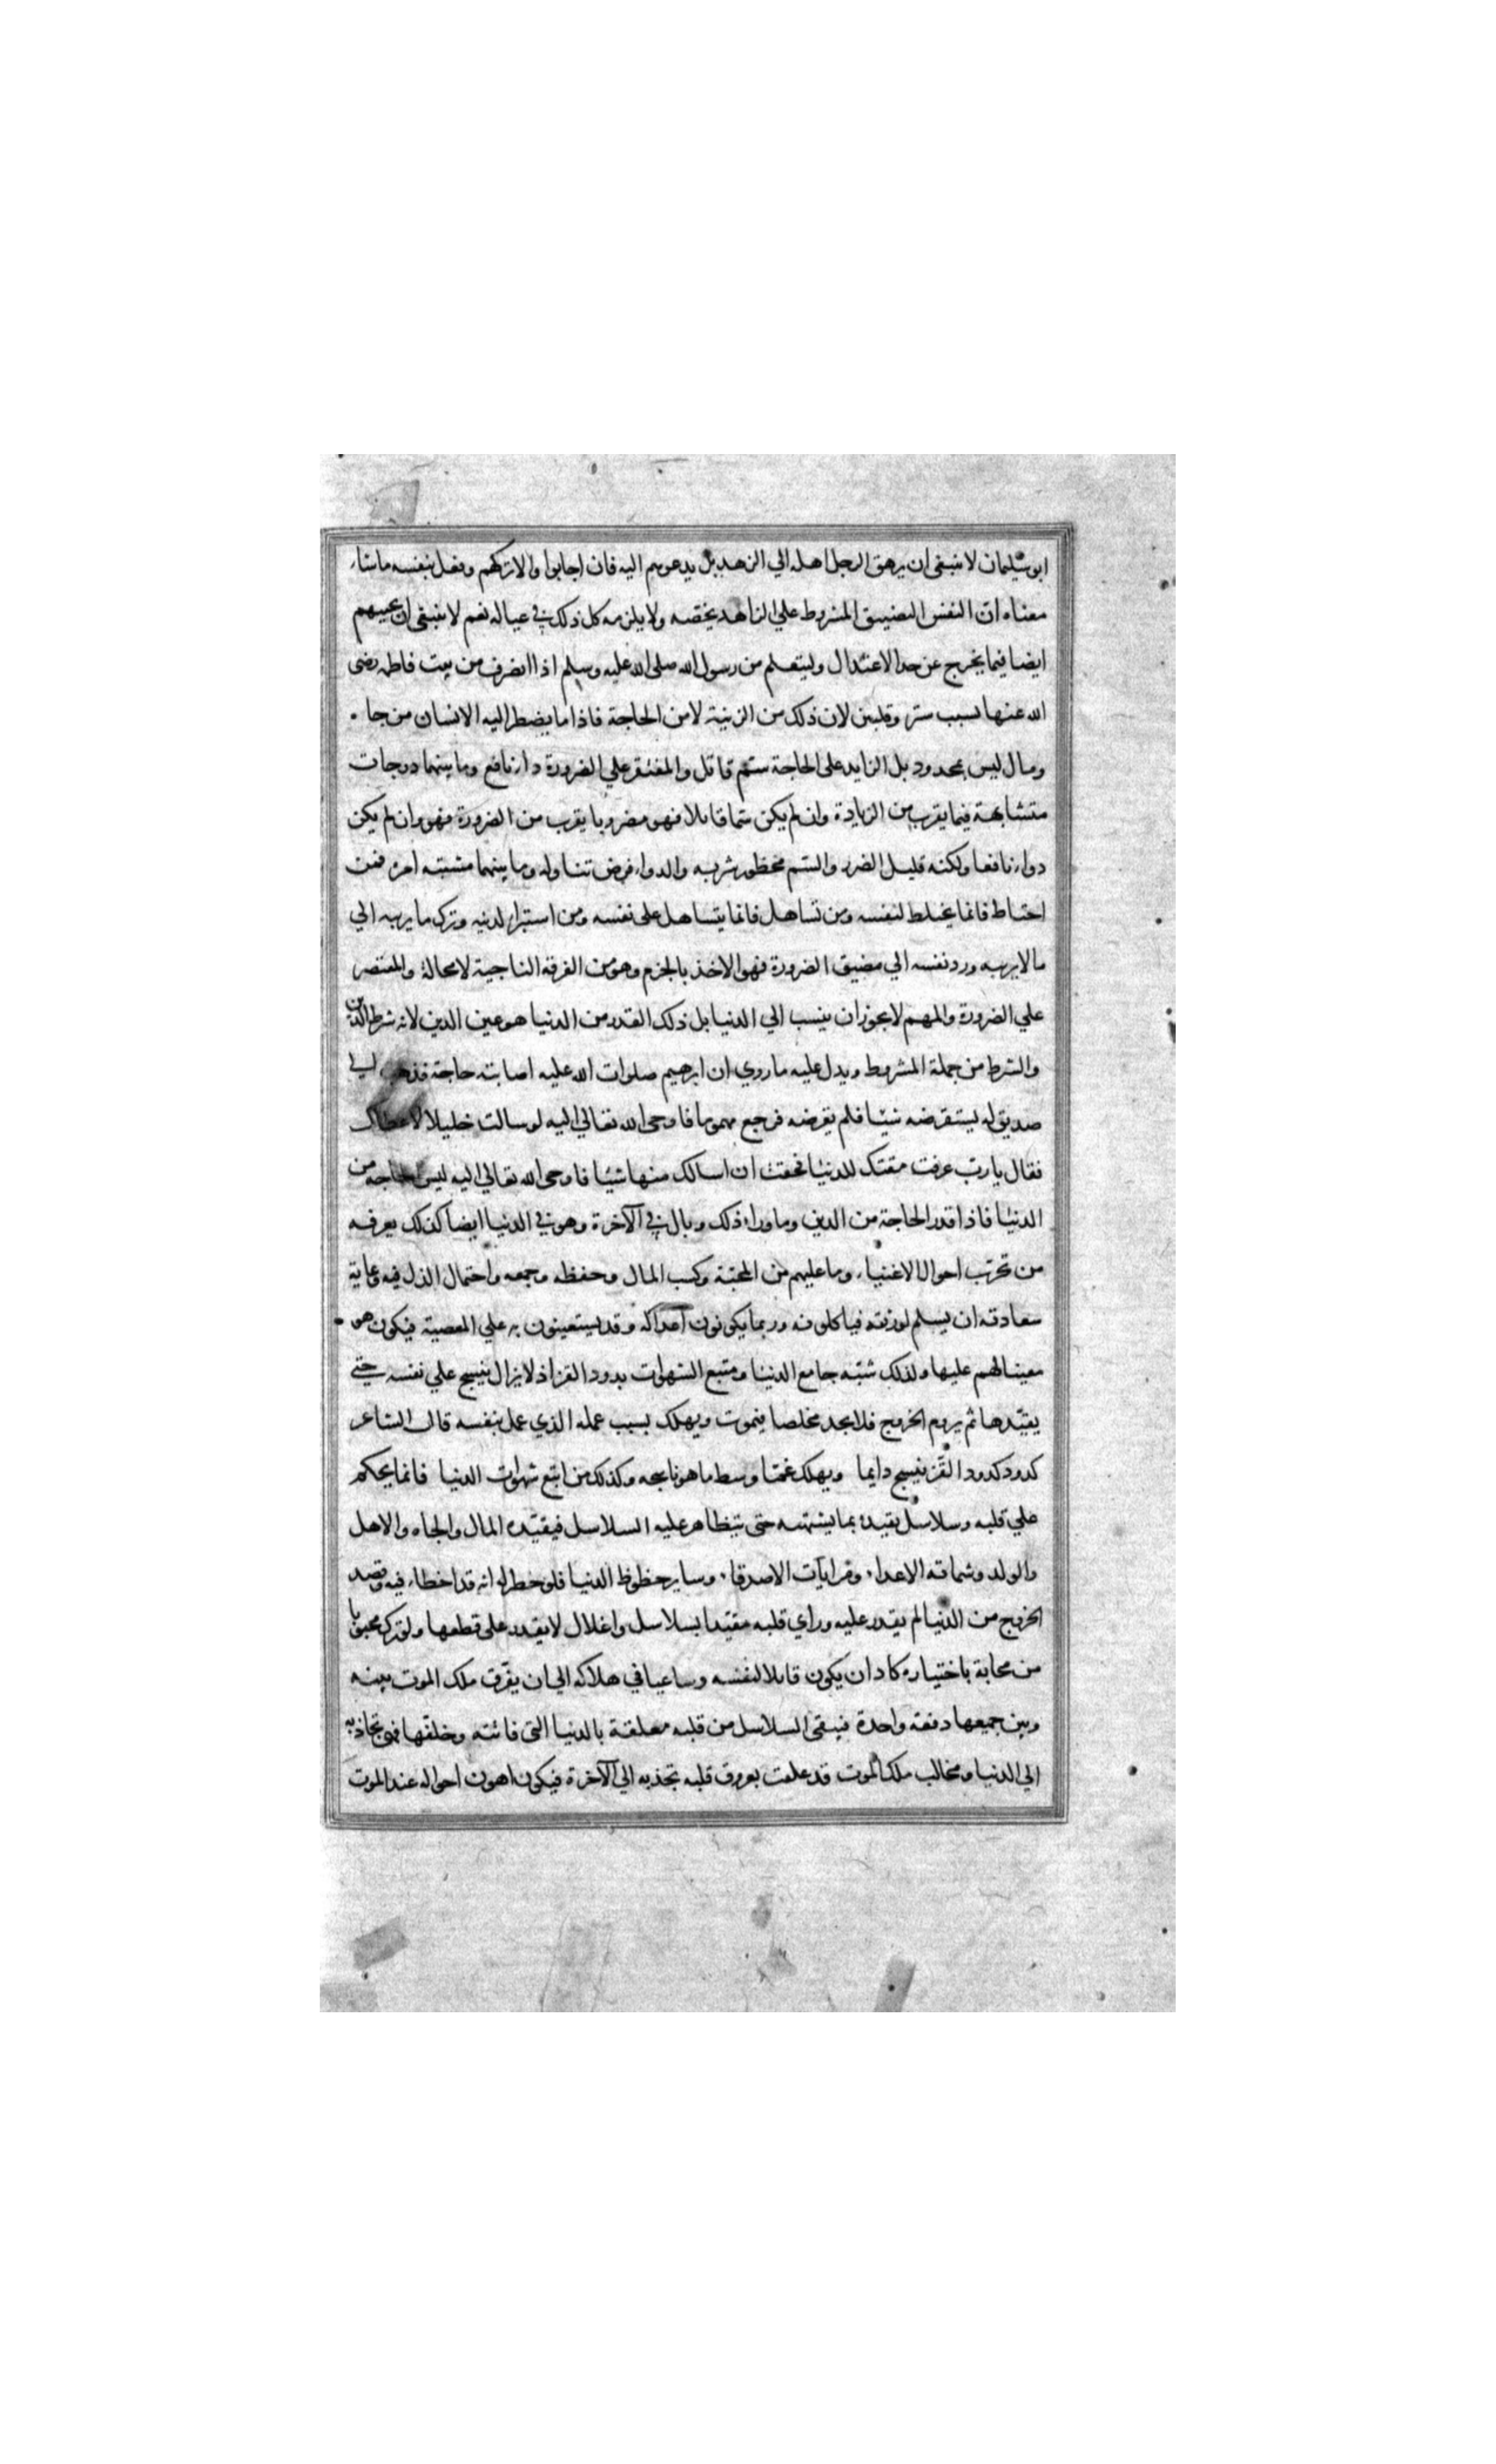 ابو سليمان لا ينبغي ان يرهق الرجل اهله الي الزهد بل يدعوهم اليه فان اجابوا والا تركهم وفعل بنفسه ما شاء
معناه ان النفس التضييق المشروط علي الزاهد يخصه ولا يلزمه كل ذلك في عياله نعم لا ينبغي ان يجيبهم
ايضا فيما يخرج عن حد الاعتدال وليتعلم من رسول الله صلى الله عليه وسلم اذا انصرف من بيت فاطمه رضى
الله عنها بسبب ستر وقلبين لان ذلك من الزينة لا من الحاجة فاذا ما يضطر اليه الانسان من جاه
ومال ليس بمحدود بل الزايد على الحاجة ستم قاتل والمقتصر علي الضرورة دواء نافع وما بينهما درجات
متشابهة فيما يقرب من الزيادة وان لم يكن ستما قاتلا فهو مضر وما يقرب من الضرورة فهو وان لم يكن
دواء نافعا ولكنه قليل الضرر والستم محظور شربه والدواء فرض تناوله وما بينهما مشتبه امره فمن
احتاط فانما يحتاط لنفسه ومن تساهل فانما يتساهل على نفسه ومن استبراء لدينه وترك ما يريبه الي
ما لا يريبه ورد نفسه الي مضيق الضرورة فهو الاخذ بالحزم وهو من الفرقة الناجية لا محالة والمقتصر
علي الضرورة والمهم لا يجوز ان ينسب الي الدنيا بل ذلك القدر من الدنيا هو عين الدين لانه شرط الدين
والشرط من جملة المشروط ويدل عليه ما روي ان ابرهيم صلوات الله عليه اصابته حاجة فذهب الي
صديق له يستقرضه شيئا فلم يقرضه فرجع مهموما فاوحى الله تعالي اليه لو سالت خليلا لاعطاك
فقال يا رب عرفت مقتك للدنيا فخفت ان اسالك منها شيئا فاوحى الله تعالي اليه ليس الحاجه من
الدنيا فاذا قدر الحاجة من الدين وما وراء ذلك وبال في الآخرة وهو في الدنيا ايضا كذلك يعرفه
من تجرب احوال الاغنياء وما عليهم من المحنة وكسب المال وحفظه وجمعه واحتمال الذل فيه وغاية
سعادته ان يسلم لورثته فياكلونه وربما يكونون اعداء له وقد يستعينون به علي المعصية فيكون هو
معينا لهم عليها ولذلك شبّه جامع الدنيا ومتبع الشهوات بدود القز اذ لا يزال ينسج علي نفسه حتى
يقيّدها ثم يروم الخروج فلا يجد مخلصا فيموت ويهلك بسبب عمله الذي عمل بنفسه قال الشاعر
كدود كدود القَز ينسج دايما ويهلك غمّا وسط ما هو ناسجه وكذلك من اتبع شهوات الدنيا فانما يحكم
علي قلبه وسلاسل يقيده بما يشتهيه حتى يتظاهر عليه السلاسل فيقيّده المال والجاه والاهل
والولد وشماته الاعداء ومرايات الاصدقاء وساير حظوظ الدنيا فلو خطر له انه قد اخطاء فيه وقصد
الخروج من الدنيا لم يقدر عليه وراي قلبه مقيّدا بسلاسل واغلال لا يقدر على قطعها ولو ترك محبوبا
من محابة باختياره كاد ان يكون قاتلا لنفسه وساعيا في هلاكه الي ان يفرّق ملك الموت بينه
وبين جميعها دفعة واحدة فيبقى السلاسل من قلبه معلقة بالدنيا التى فاتته وخلّفها فهي تجاذبه
الي الدنيا ومخالب ملك الموت قد علقت بعروق قلبه تجذبه الي الآخرة فيكون اهون احواله عند الموت